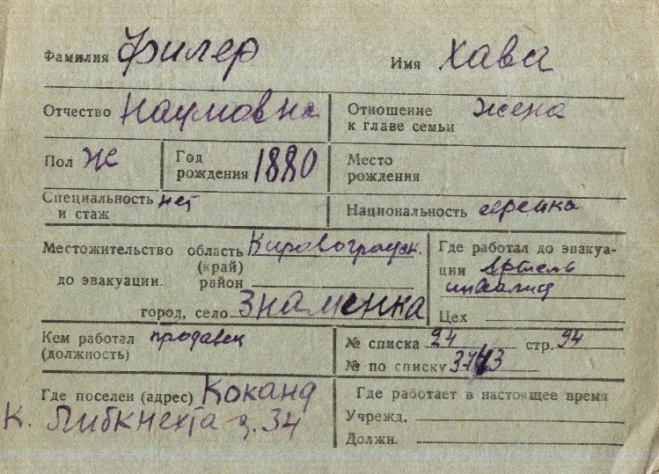 Фамилия Филер Имя Хава
Отчество Наумовна Отношение к главе семьи жена
Пол Ж Год рождения 1880 Место рождения
Специальность и стаж нет Национальность еврейка
Местожительство до эвакуации. область (край) Кировоградск. район
город, село Знаменка
Где работал до эвакуации Артель инвалид
Цех
Кем работал (должность) продавец № списка 24 стр. 94
№ по списку
Где поселен (адрес) Коканд
К. Либкнехта д. 34
Где работает в настоящее время
Учрежд.
Должн.